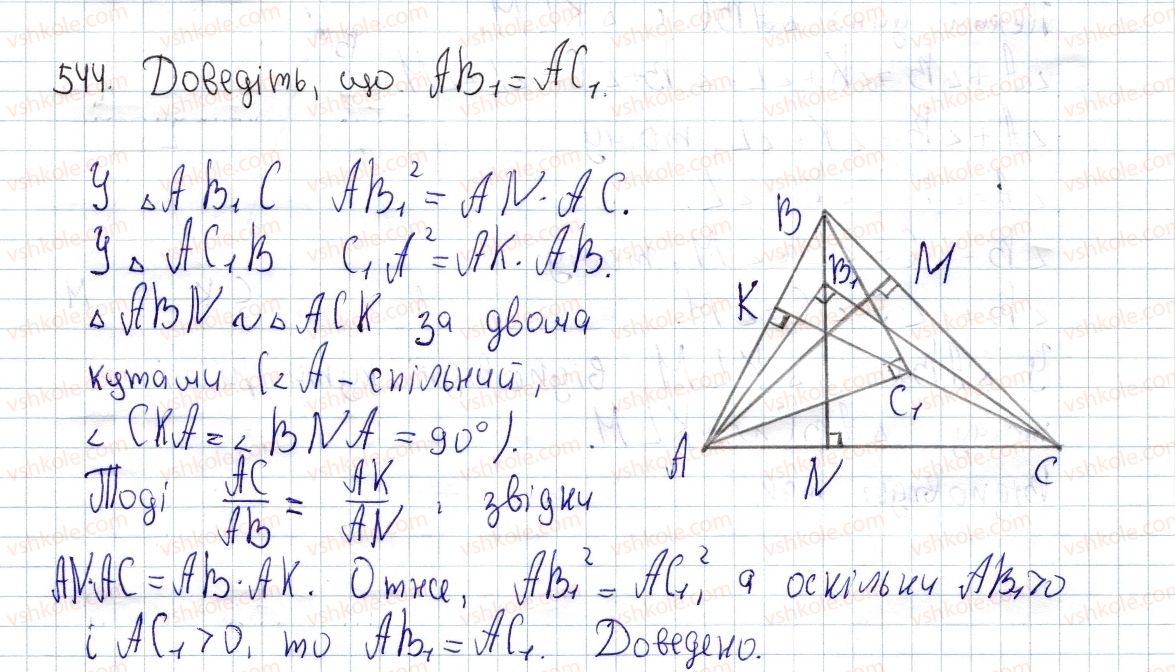 544. Доведіть, що AB₁ = AC₁.
У △AB₁C AB₁² = AN · AC.
У △ AC₁B C₁A² = AK · AB.
△ ABN ~ △ ACK за двома
кутами (∠A – спільний,
∠ CKA = ∠ BNA = 90°).
Тоді AC/AB = AK/AN, звідки
AN·AC = AB·AK. Отже, AB₁² = AC₁², а оскільки AB₁>0
і AC₁>0, то AB₁ = AC₁. Доведено.
B
B₁
M
K
C₁
A
N
C
vshkole.com